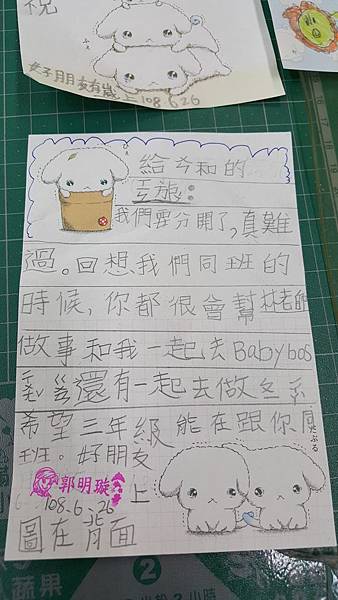 祝
好朋友
108.6.26
給岑和的
我們要分開了,真難
過。回想我們同班的
時候,你都很會幫林老師
做事和我一起去Babybos
還有一起去做冬
希望三年級能在跟你同
班。好朋友
郭明璇 上
108.6.26
圖在背面
2
蔬果
2小時